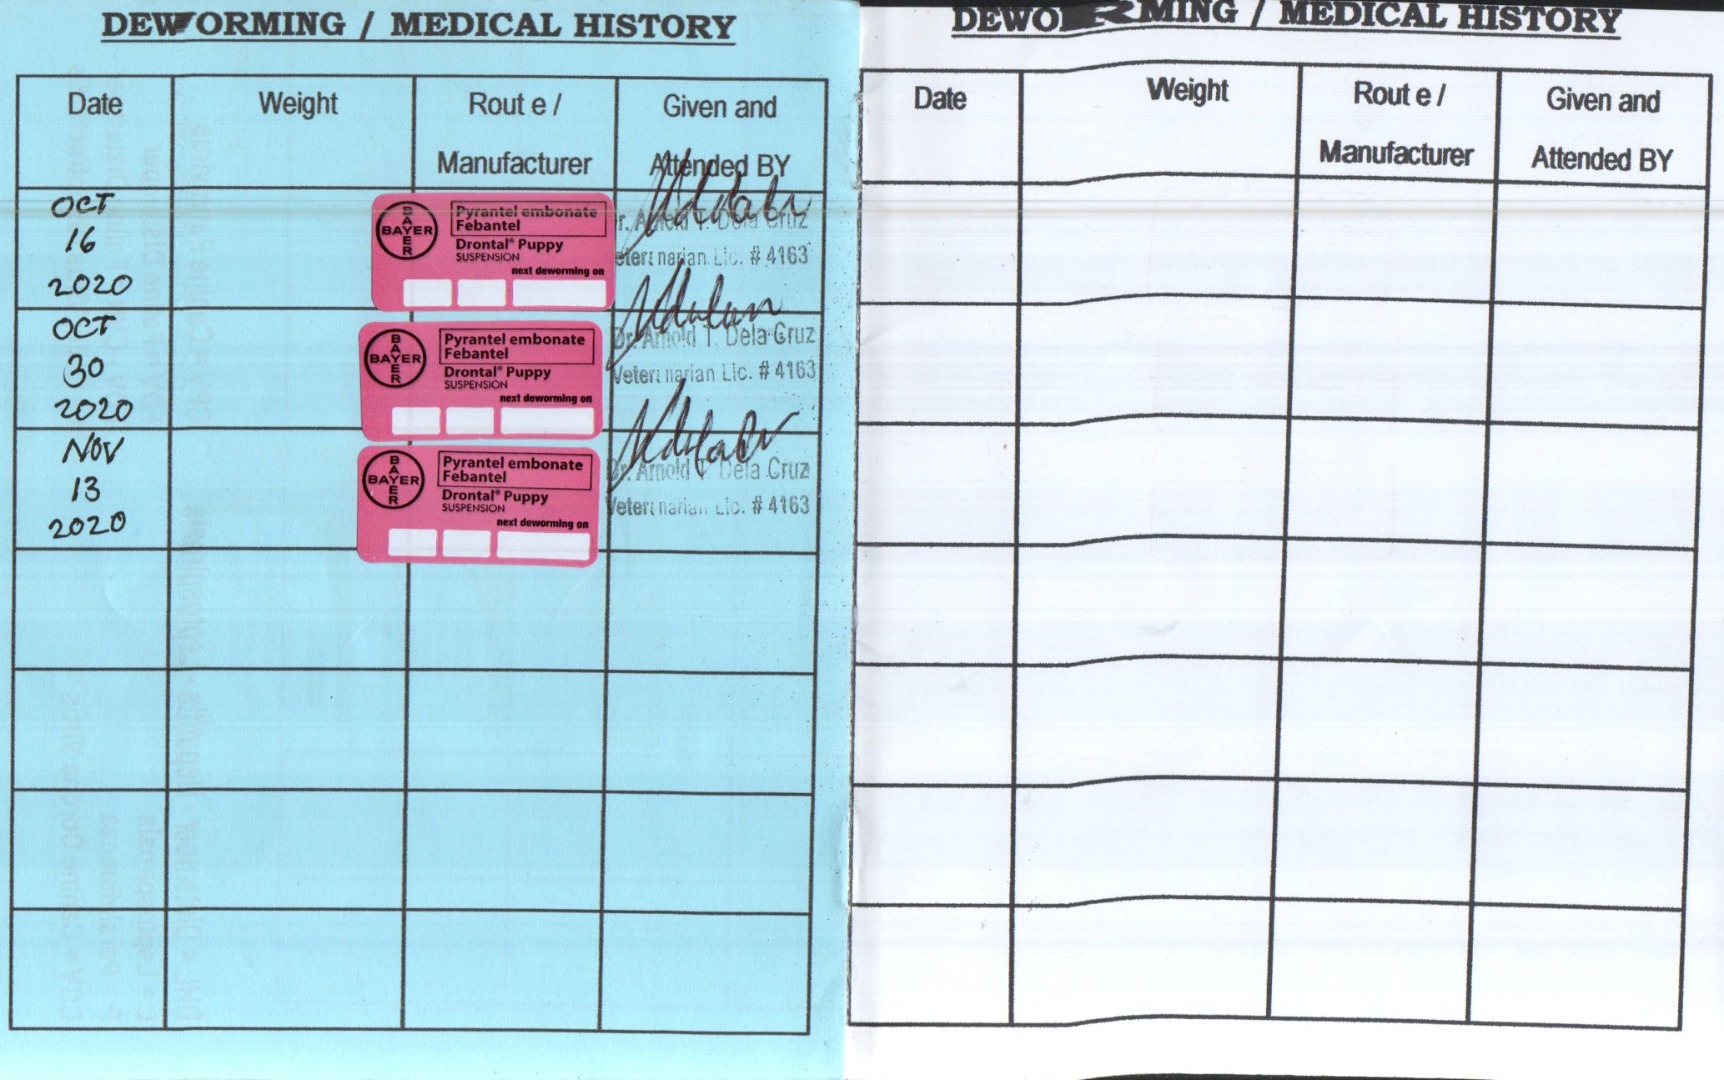 DEWORMING / MEDICAL HISTORY
Date
Weight
Rout e /
Manufacturer
Given and
Attended BY
OCT
16
2020
BAYER
BAYER
Pyrantel embonate
Febantel
Drontal® Puppy
SUSPENSION
next deworming on
Dr. Arnold T. Dela Cruz
Veterinarian Lic. # 4163
OCT
30
2020
BAYER
BAYER
Pyrantel embonate
Febantel
Drontal® Puppy
SUSPENSION
next deworming on
Dr. Arnold T. Dela Cruz
Veterinarian Lic. # 4163
NOV
13
2020
BAYER
BAYER
Pyrantel embonate
Febantel
Drontal® Puppy
SUSPENSION
next deworming on
Dr. Arnold T. Dela Cruz
Veterinarian Lic. # 4163
DEWORMING / MEDICAL HISTORY
Date
Weight
Rout e /
Manufacturer
Given and
Attended BY